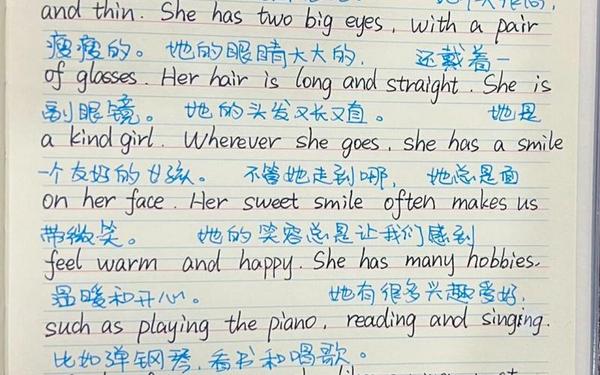 and thin. She has two big eyes, with a pair
瘦瘦的。 她的眼睛大大的, 还戴着一
of glasses. Her hair is long and straight. She is
副眼镜。 她的头发又长又直。 她是
a kind girl. Wherever she goes, she has a smile
一个友好的女孩。 不管她走到哪, 她总是面
on her face. Her sweet smile often makes us
带微笑。 她的笑容总是让我们感到
feel warm and happy. She has many hobbies.
温暖和开心。 她有很多兴趣爱好,
such as playing the piano, reading and singing.
比如弹钢琴,看书和唱歌。